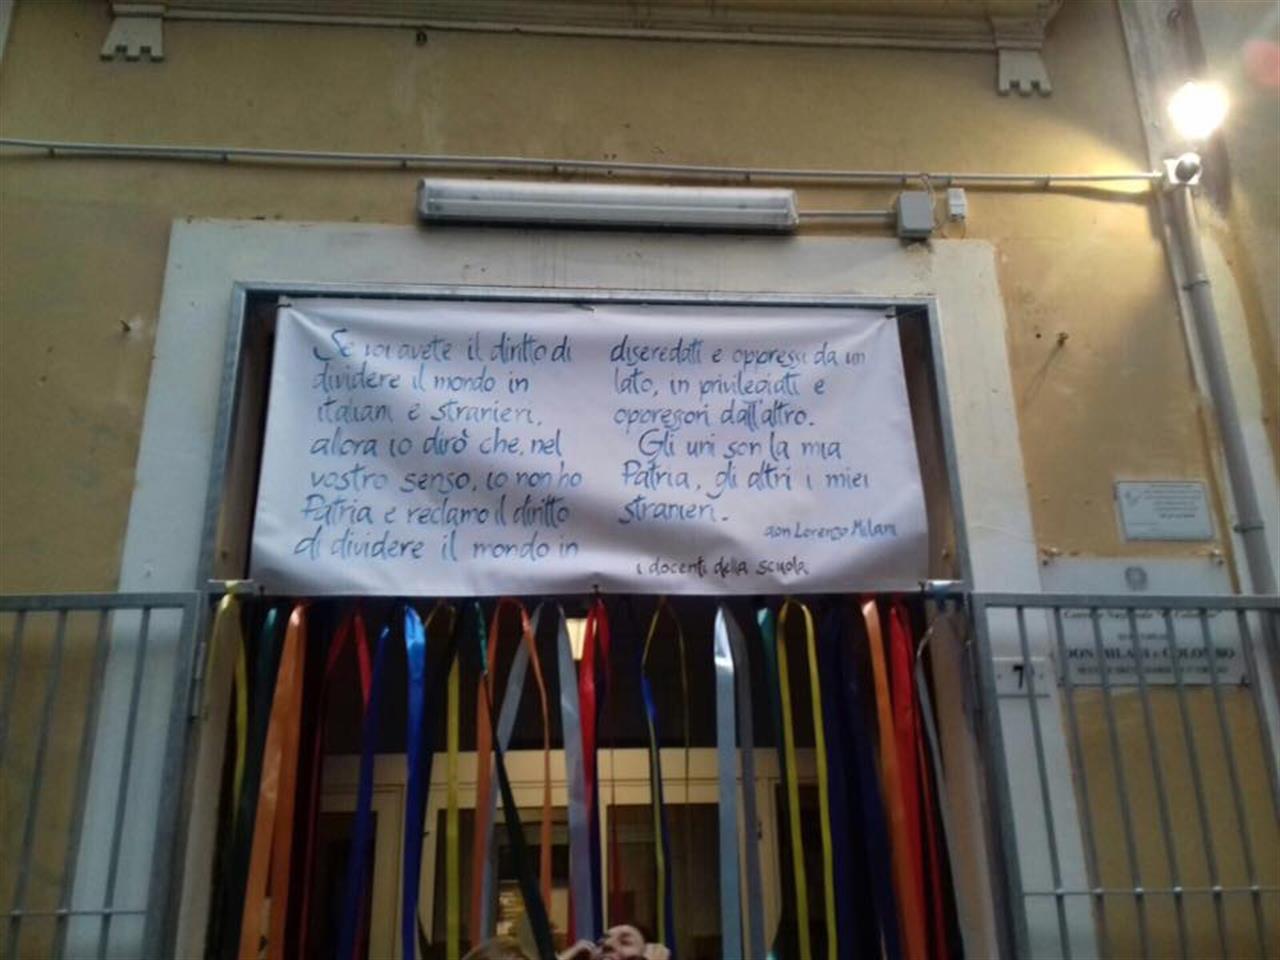 Se voi avete il diritto di
dividere il mondo in
italiani e stranieri,
allora io dirò che, nel
vostro senso, io non ho
Patria e reclamo il diritto
di dividere il mondo in
diseredati e oppressi da un
lato, in privilegiati e
oppressori dall'altro.
Gli uni son la mia
Patria, gli altri i miei
stranieri.
don Lorenzo Milani
i docenti della scuola
7
DON MILANI e COLOMBO